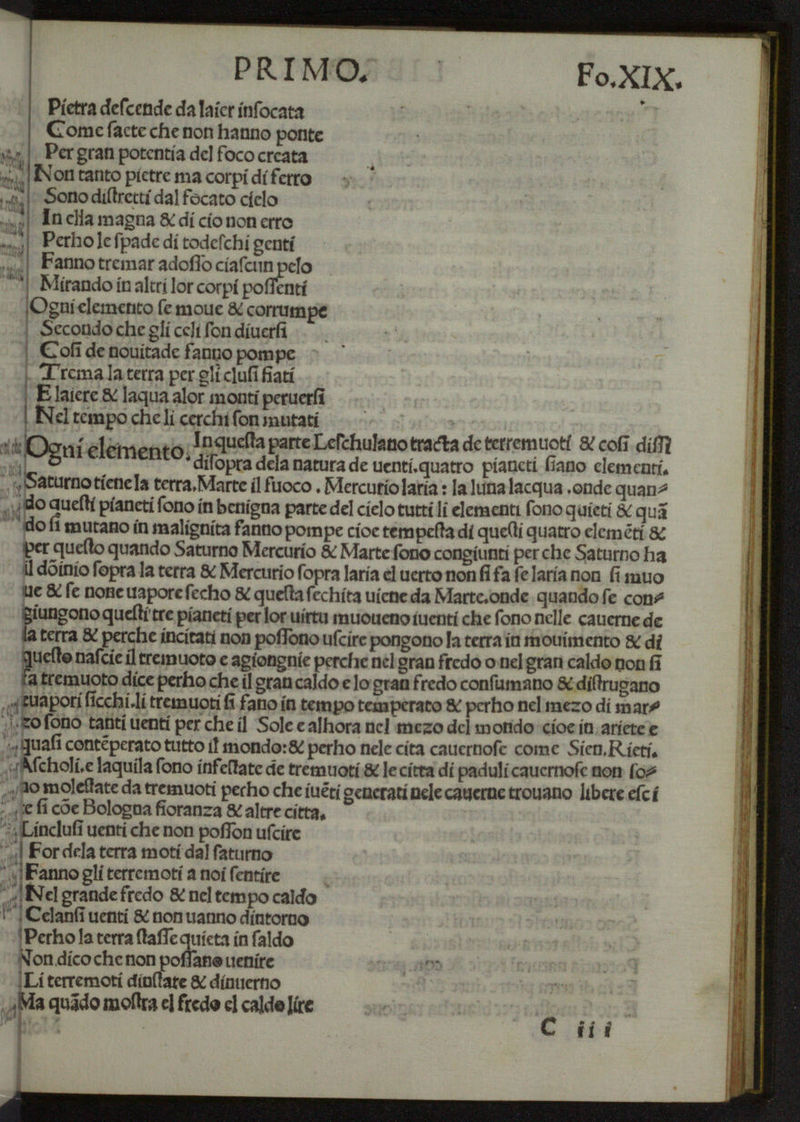 PRIMO.
Fo.XIX.
Pietra deſcende da laier inſocata
Come ſaete che non hanno ponte
Per gran potentia del foco creata
Non tanto pietre ma corpi di ferro
Sono diſtretti dal focato cielo
In ella magna & di cio non erro
Perho le ſpade di todeſchi genti
Fanno tremar adoſſo ciaſcun pelo
Mirando in altri lor corpi poſſenti
Ogni elemento ſe moue & corrumpe
Secondo che gli celi ſon diuerſi
Coſi de nouitade fanno pompe
Trema la terra per gli cluſi fiati
E laiere & laqua alor monti peruerſi
Nel tempo che li cerchi ſon mutati
Ogni elemento. In queſta parte Leſchulano tracta de terremuoti & coſi diſſi
diſopra dela natura de uenti.quatro pianeti ſiano elementi.
Saturno tiene la terra.Marte il fuoco . Mercurio laria : la luna lacqua .onde quan⸗
do queſti pianeti ſono in benigna parte del cielo tutti li elementi ſono quieti & quā
do ſi mutano in malignita fanno pompe cioe tempeſta di queſti quatro elemēti &
per queſto quando Saturno Mercurio & Marte ſono congiunti per che Saturno ha
il dōinio ſopra la terra & Mercurio ſopra laria el uerto non ſi fa ſe laria non ſi muo
ue & ſe none uapore ſecho & queſta ſechita uiene da Marte.onde quando ſe con⸗
giungono queſti tre pianeti per lor uirtu muoueno iuenti che ſono nelle cauerne de
la terra & perche incitati non poſſono uſcire pongono la terra in mouimento & di
queſto naſcie il tremuoto e agiongnie perche nel gran fredo o nel gran caldo non ſi
fa tremuoto dice perho che il gran caldo e lo gran fredo conſumano & diſtrugano
euapori ſicchi.li tremuoti ſi fano in tempo temperato & perho nel mezo di mar⸗
zo ſono tanti uenti per che il Sole e alhora nel mezo del mondo cioe in ariete e
quaſi contēperato tutto il mondo:& perho nele cita cauernoſe come Sien.Rieti.
Aſcholi.e laquila ſono infeſtate de tremuoti & le citta di paduli cauernoſe non ſo⸗
no moleſtate da tremuoti perho che iuēti generati nele cauerne trouano libere eſci
te ſi cōe Bologna fioranza & altre citta.
Lincluſi uenti che non poſſon uſcire
For dela terra moti dal ſaturno
Fanno gli terremoti a noi ſentire
Nel grande fredo & nel tempo caldo
Celanſi uenti & non uanno dintorno
Perho la terra ſtaſſe quieta in ſaldo
Non dico che non poſſano uenire
Li terremoti dinſtate & dinuerno
Ma quādo moſtra el fredo el caldo lire
C iii